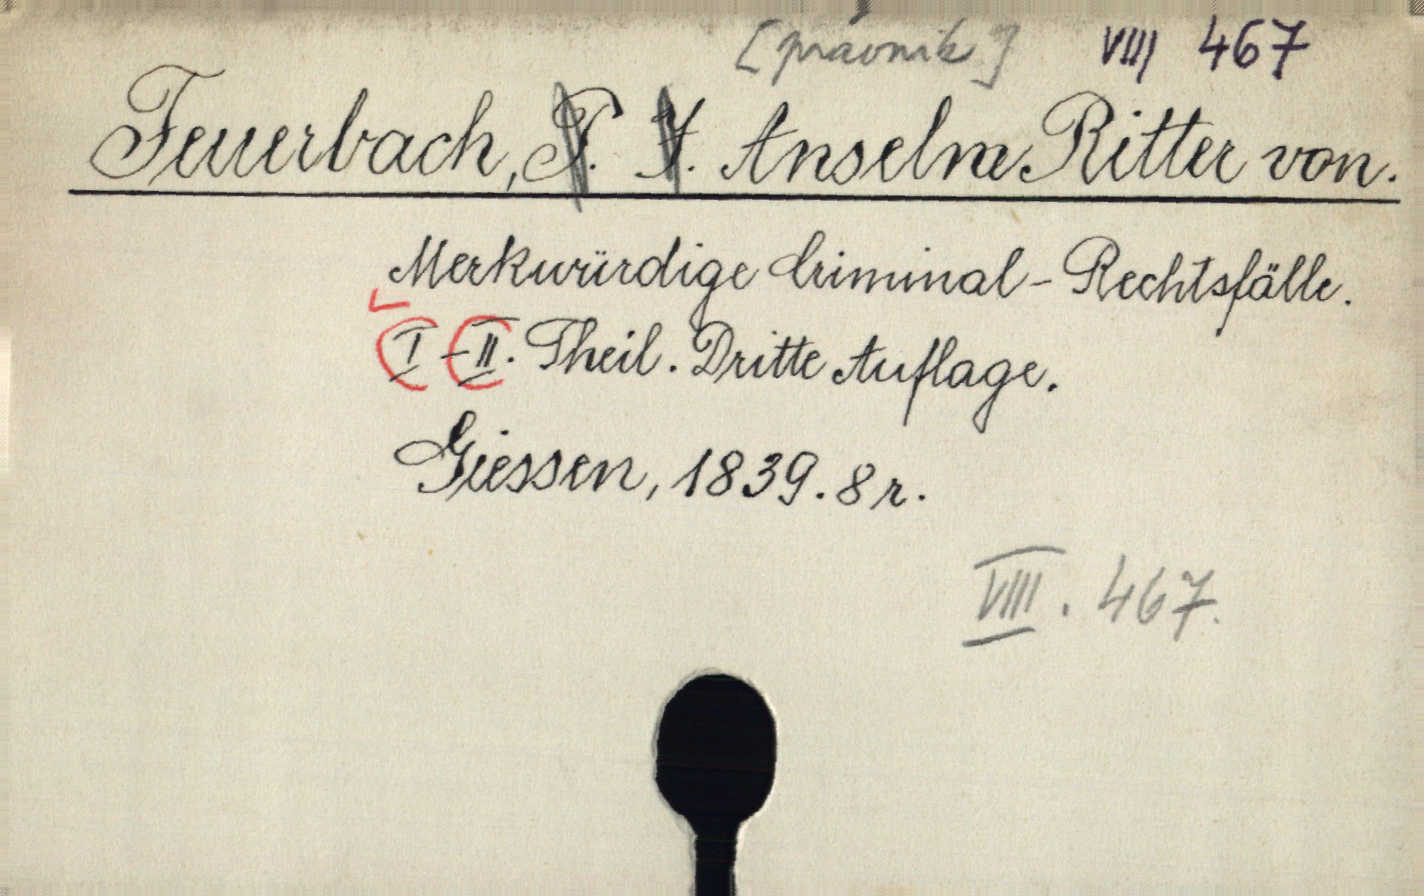 [právnik] VIII 467
Feuerbach, P. J. Anselm Ritter von.
Merkwürdige Criminal-Rechtsfälle.
I-II. Theil. Dritte Auflage.
Giessen, 1839. 8r.
VIII. 467.